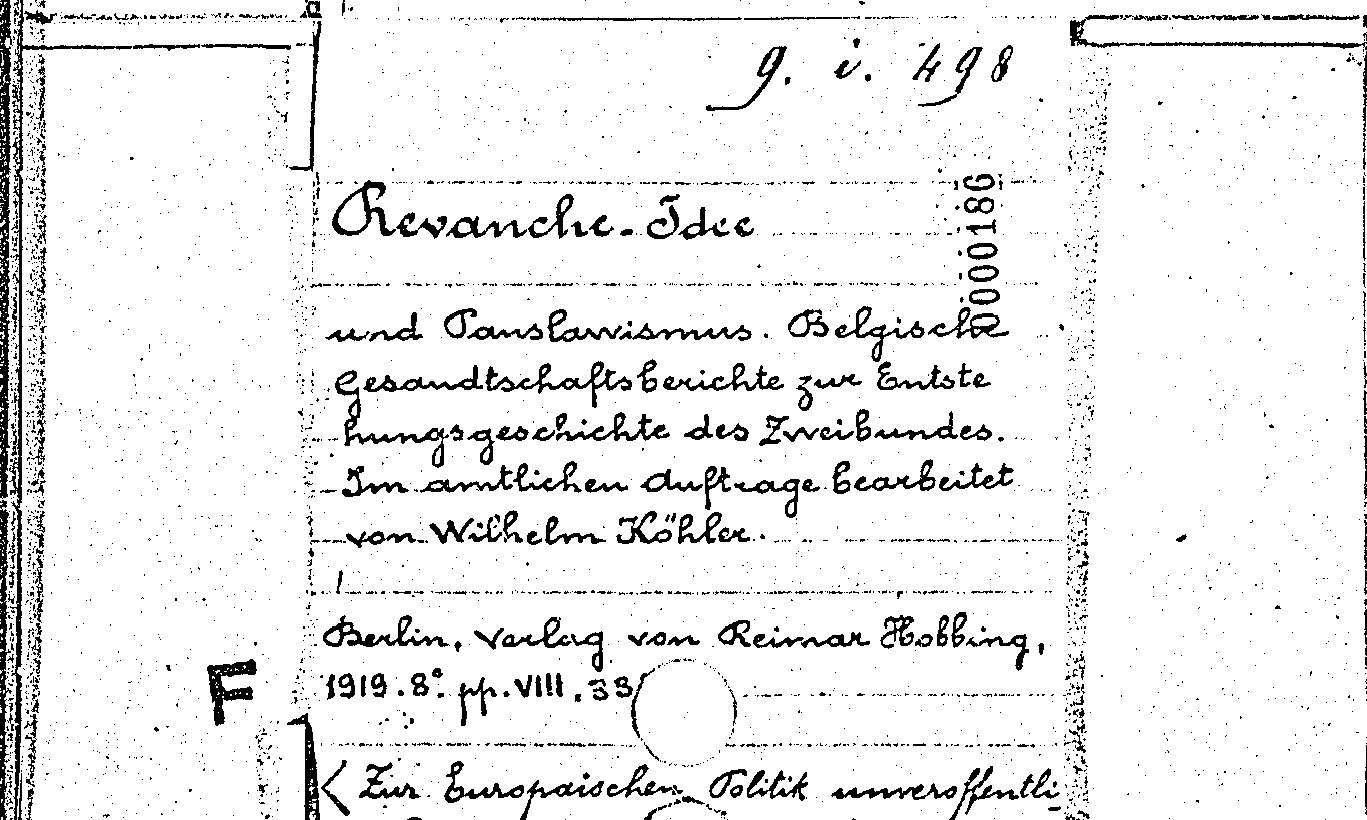 9. i. 498
0000186
Revanche-Idee
und Panslawismus. Belgische
Gesandtschaftsberichte zur Entste
hungsgeschichte des Zweibundes.
Im amtlichen Auftrage bearbeitet
von Wilhelm Köhler.
Berlin, Verlag von Reimar Hobbing,
1919. 8°. pp. VIII. 33
F
< Zur Europaischen Politik unveroffentli-